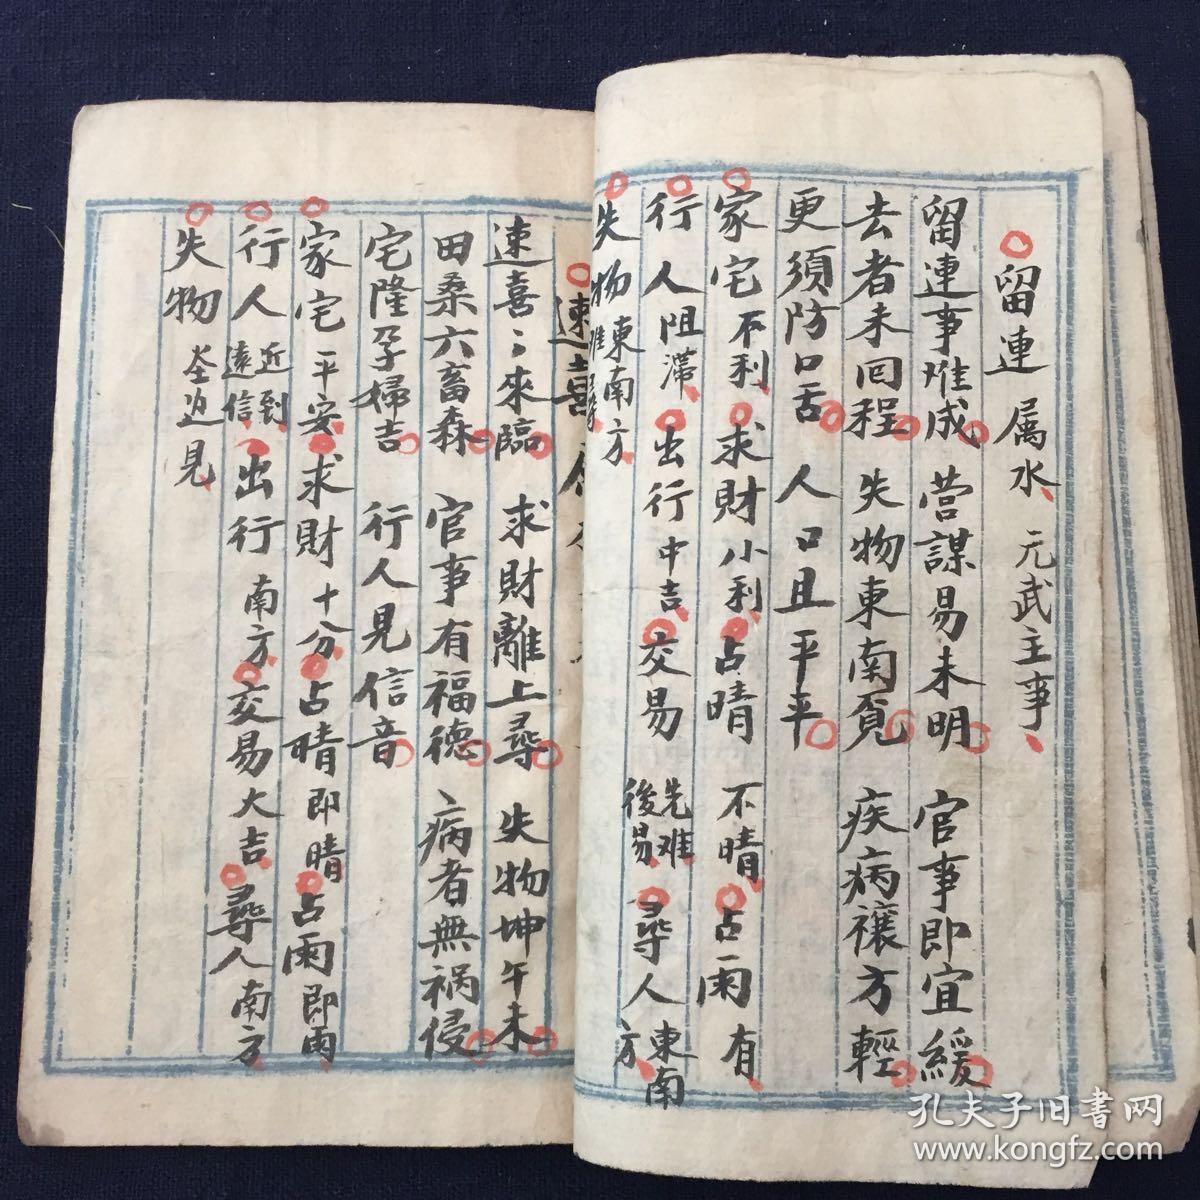 留連 属水 元武主事
留連事难成 营謀易未明 官事即宜緩
去者未回程 失物東南覔 疾病禳方輕
更須防口舌 人口且平平
家宅不利 求財小利 占晴不晴 占雨有
行人阻滞 出行中吉 交易先难後易 尋人東南方
失物東南方难尋
速喜
速喜〻來臨 求財離上尋 失物坤午未
田桑六畜森 官事有福德 病者無祸侵
宅隆孕婦吉 行人見信音
家宅平安 求財十分 占晴即晴 占雨即雨
行人近到遠信 出行南方 交易大吉 尋人南方
失物 見
孔夫子旧书网
www.kongfz.com